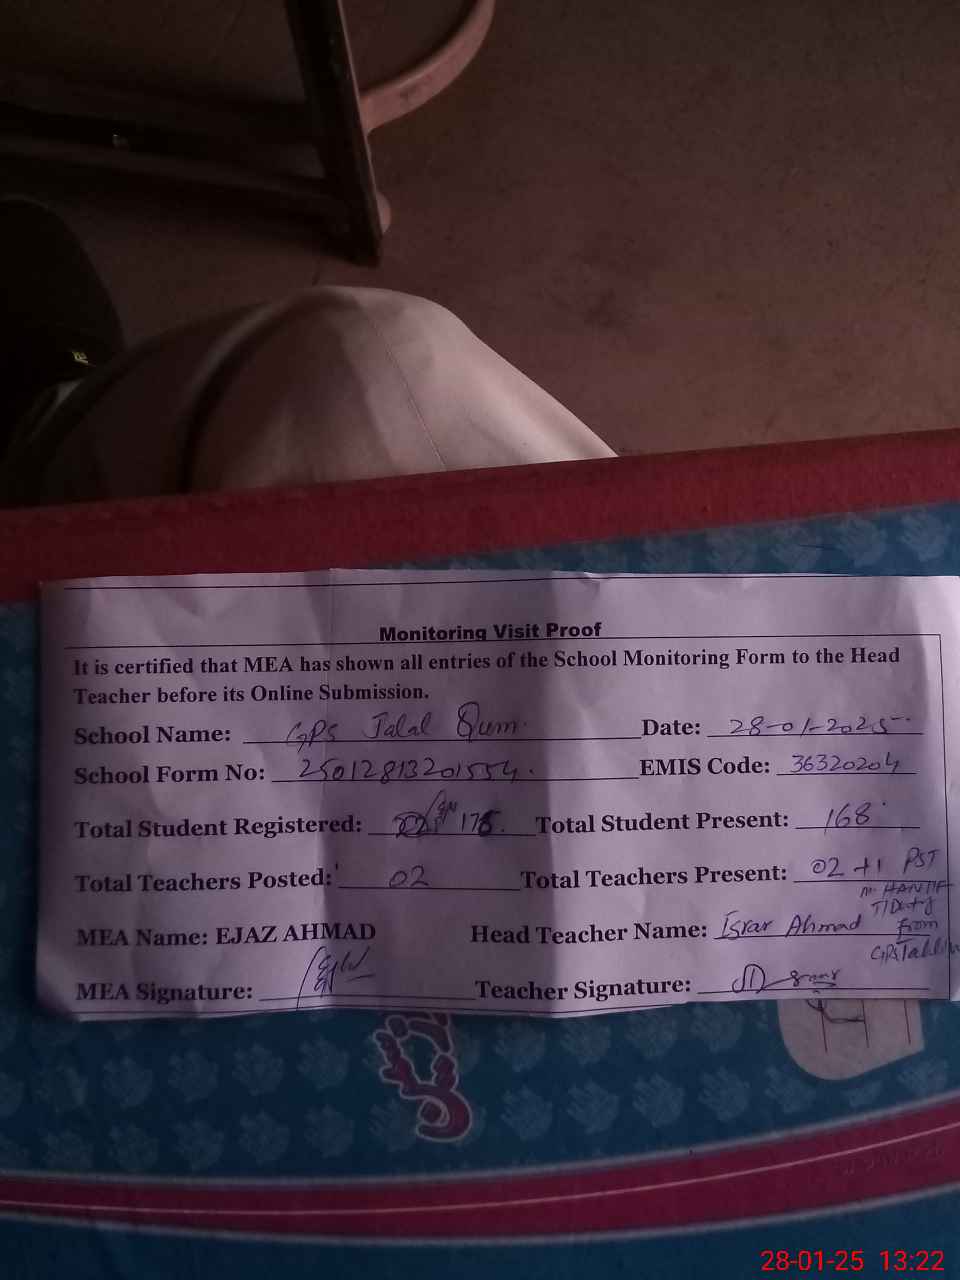 Monitoring Visit Proof
It is certified that MEA has shown all entries of the School Monitoring Form to the Head
Teacher before its Online Submission.
School Name: GPS Jalal Qum. Date: 28-01-2025
School Form No: 25012813201554. EMIS Code: 36320204
Total Student Registered: 175. Total Student Present: 168
Total Teachers Posted: 02 Total Teachers Present: 02 +1 PST
M. HANIF
T/Duty
MEA Name: EJAZ AHMAD Head Teacher Name: Israr Ahmad from
GPS
MEA Signature: Teacher Signature:
28-01-25 13:22